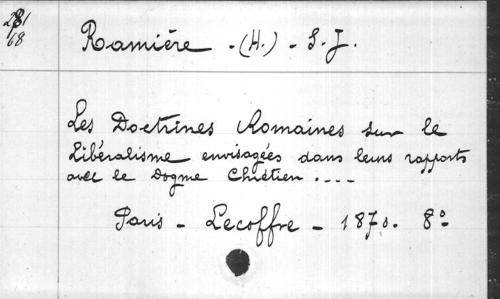 281
68
Ramière - (H.) - S. J.
Les Doctrines Romaines sur le
Libéralisme envisagées dans leurs rapports
avec le Dogme Chrétien . ...
Paris - Lecoffre - 1870. 8º